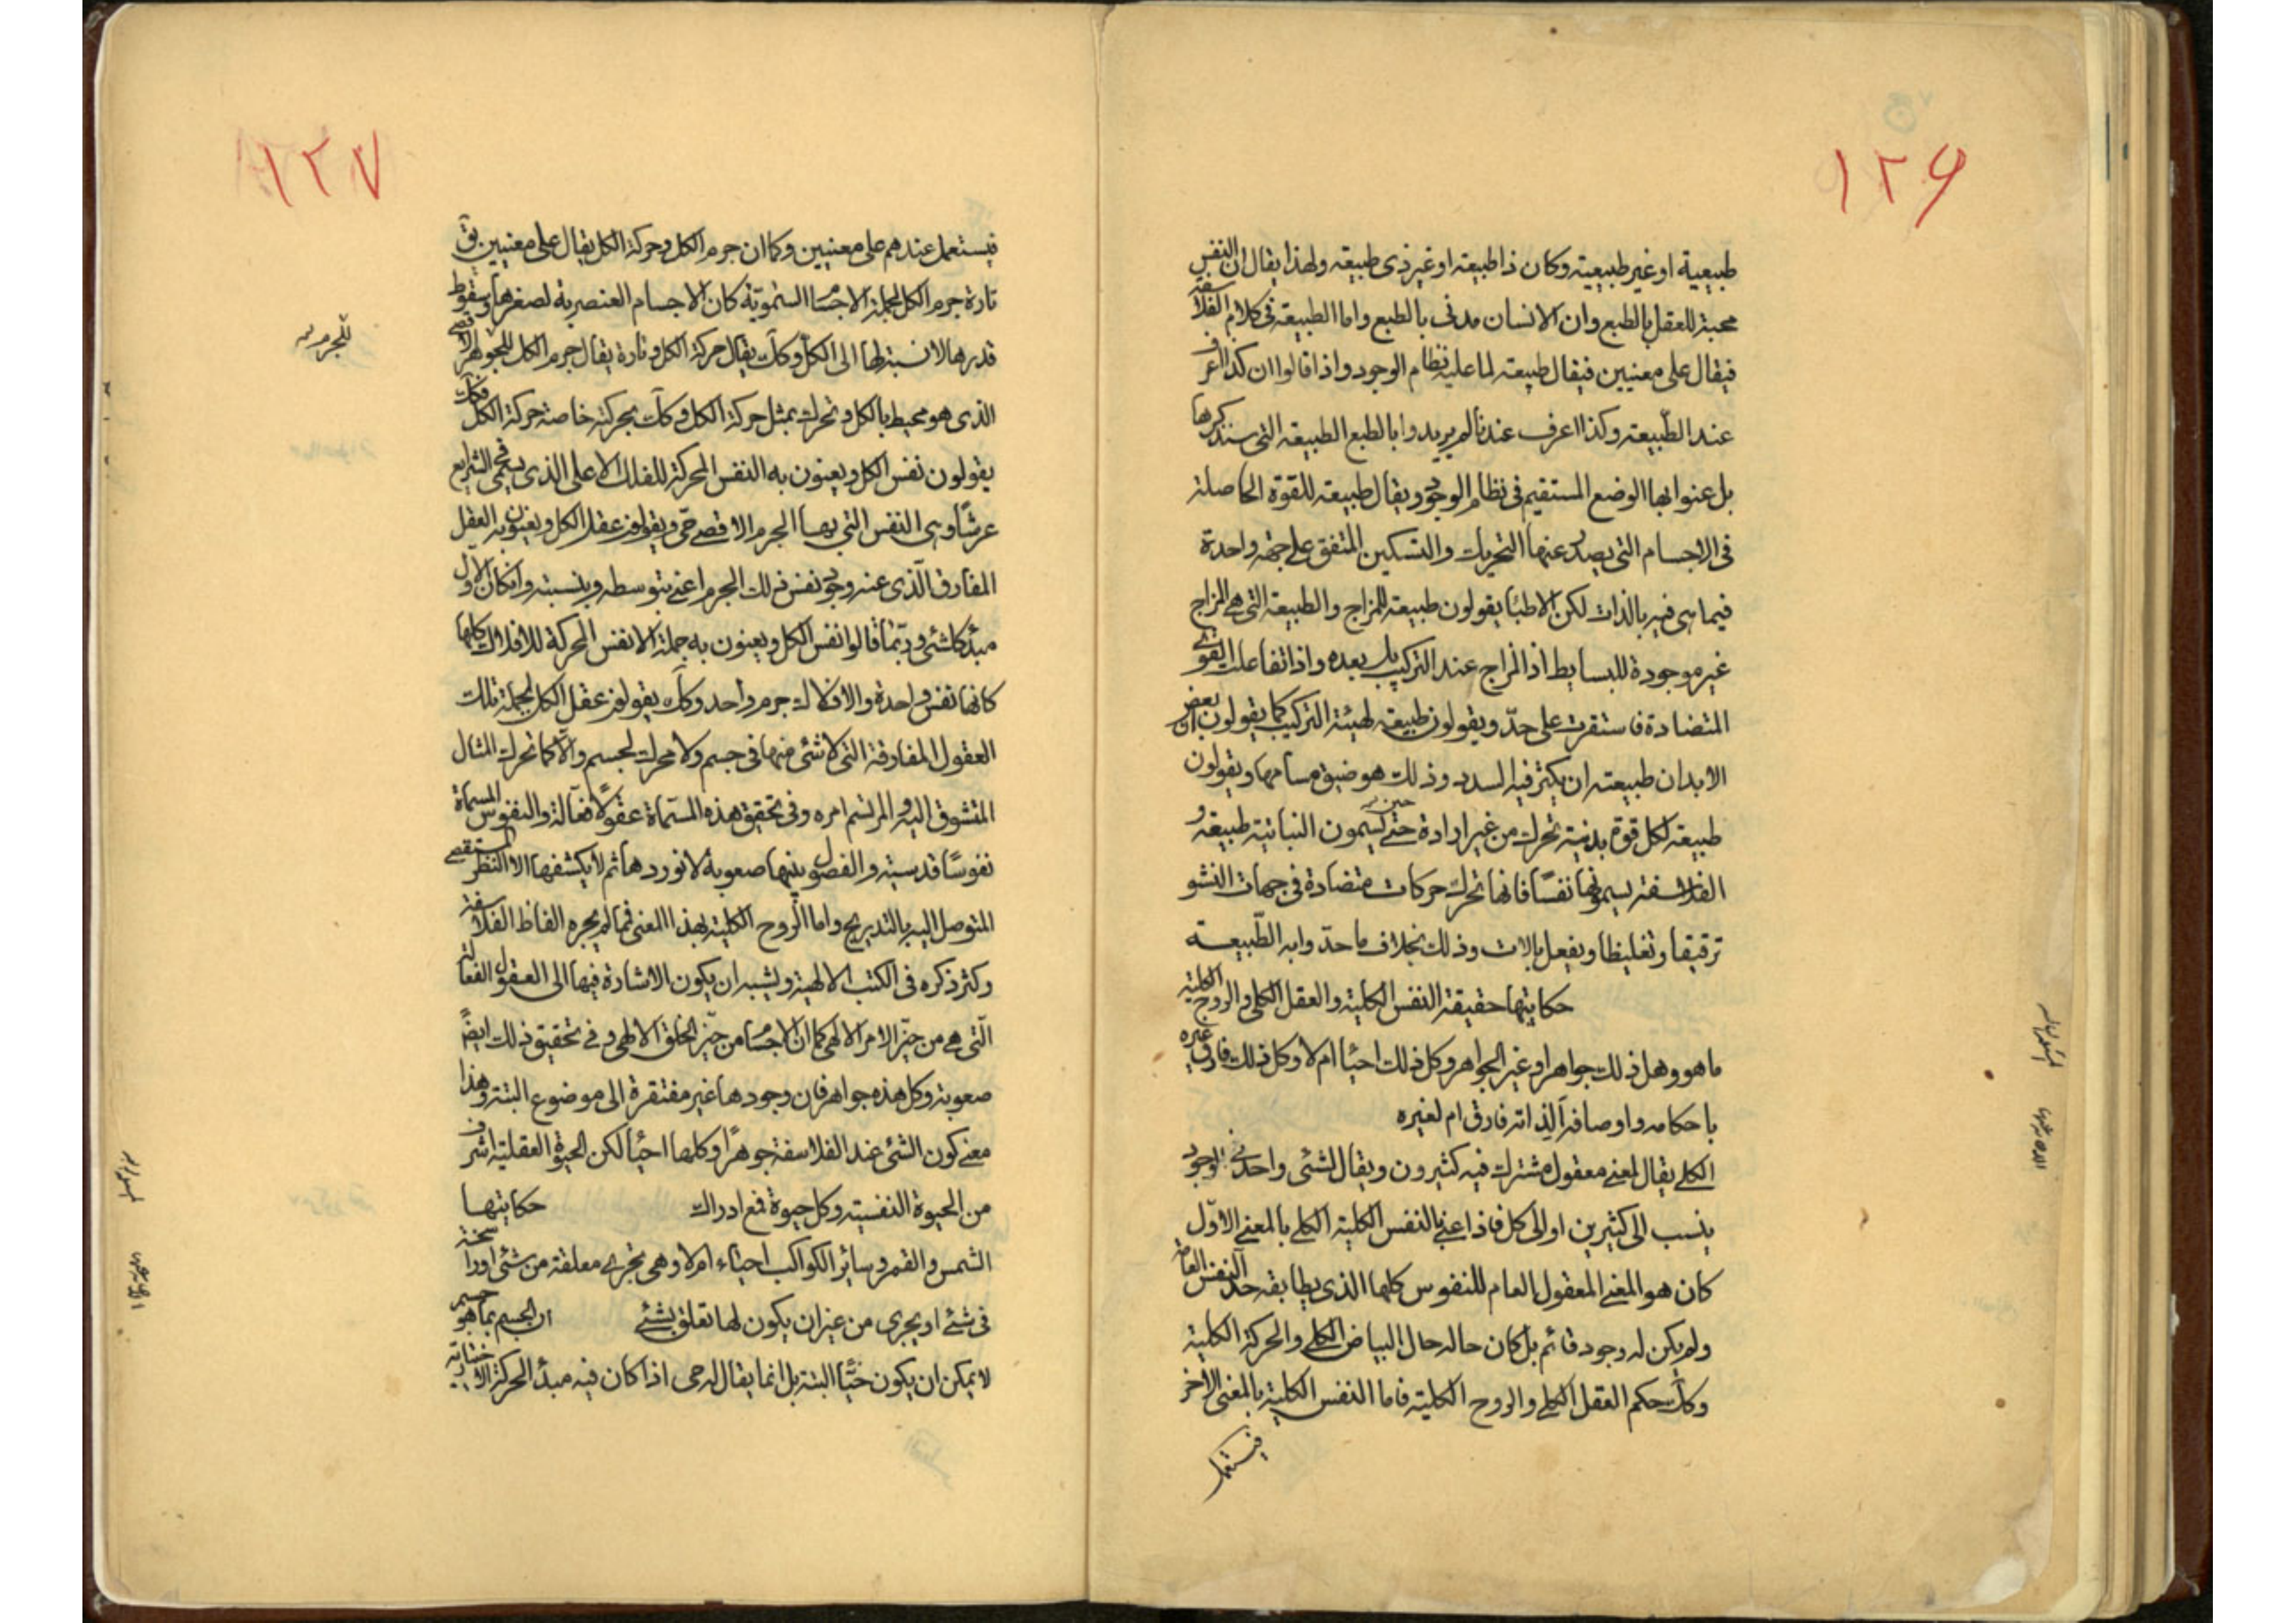 ١٢٦
طبيعية او غير طبيعية وكان ذا طبيعة او غير ذى طبيعة ولهذا يقال ان النفس
محبة للعقل بالطبع وان الانسان مدنى بالطبع واما الطبيعة فى كلام الفلاسفة
فيقال على معنيين فيقال طبيعة لما عليه نظام الوجود واذا قالوا ان كذا اعرف
عند الطّبيعة وكذا اعرف عندنا لم يريدوا بالطبع الطبيعة التى سنذكرها
بل عنوا بها الوضع المستقيم فى نظام الوجود ويقال طبيعة للقوة الحاصلة
فى الاجسام التى يصدر عنها التحريك والتسكين المتفق على جهة واحدة
فيما هى فيه بالذات لكن الاطباء يقولون طبيعة للمزاج والطبيعة التى هى المزاج
غير موجودة للبسايط اذ المزاج عند التركيب بل بعده واذا تفاعلت القوى
المتضادة فاستقرت على حدّ ويقولون طبيعة لهيئة التركيب كما يقولون ان بعض
الابدان طبيعته ان يكثر فيه السدد وذلك هو ضيق مسامها ويقولون
طبيعة لكل قوة بدنية تحرك من غير ارادة حتى يسمون النباتية طبيعة و
حين
الفلاسفة يسمونها نفسًا فانها تحرك حركات متضادة فى جهات النشو
ترقيقا وتغليظا ويفعل بالات وذلك بخلاف ما حدّوا به الطّبيعة
حكايتها حقيقة النفس الكلية والعقل الكلى والروح الكلية
ما هو وهل ذلك جواهر او غير الجواهر وكل ذلك احياء ام لا وكل ذلك فارق غيره
باحكامه واوصافه الذاته فارق ام لغيره
الكلى يقال لمعنى معقول مشترك فيه كثيرون ويقال لشئى واحد فى الوجود
ينسب الى كثيرين او الى كل فاذا عنى بالنفس الكلية الكلى بالمعنى الاوّل
كان هو المعنى المعقول العام للنفوس كلها الذى يطابقه حد النفس العامة
ولم يكن له وجود قائم بل كان حاله حال البياض الكلى والحركة الكلية
وكك حكم العقل الكلى والروح الكلية فاما النفس الكلية بالمعنى الاخر
فيستعمل
١٢٧
فيستعمل عندهم على معنيين وكما ان جرم الكل وحركة الكل يقال على معنيين يق
تارة جرم الكل لجملة الاجسام السّمويّة كان الاجسام العنصرية لصغرها وسقوط
قدرها لا نسبة لها الى الكل وكك يقال حركة الكل وتارة يقال جرم الكل للجوهر الاقصى
للجرم
الذى هو محيط بالكل وتحرك بمثل حركة الكل وكك بحركته خاصة حركة الكل فكك
يقولون نفس الكل ويعنون به النفس المحركة للفلك الاعلى الذى يسمى فى الشرايع
عرشًا وهى النفس التى بها الجرم الاقصى حىّ ويقولون عقل الكل ويعنون به العقل
المفارق الّذى عنه وجود نفس ذلك الجرم اعنى بتوسطه وبنسبته وان كان الاوّل
مبدء كلشئى وربّما قالوا نفس الكل ويعنون به جملة الانفس المحركة للافلاك كلها
كانها نفس واحدة والافلاك جرم واحد وكك يقولون عقل الكل لجملة تلك
العقول المفارقة التى لا شئى منها فى جسم ولا محرك لجسم والا كما تحرك المثال
المتشوق اليه والمرتسم امره وفى تحقيق هذه المسمّاة عقولًا فعالة والنفوس المسماة
نفوسًا قدسية والفصول بينها صعوبة لا نوردها ثم لا يكشفها الا النظر المستقصى
المتوصل اليه بالتدريج واما الرّوح الكلية بهذا المعنى فما لم يجره الفاظ الفلاسفة
وكثر ذكره فى الكتب الالهية ويشبه ان يكون الاشارة فيها الى العقول الفعالة
الّتى هى من حيّز الامر الالهى كما ان الاجسام من حيّز الخلق الالهى و فى تحقيق ذلك ايضًا
صعوبة وكل هذه جواهر فان وجودها غير مفتقرة الى موضوع البتة وهذا
معنى كون الشئى عند الفلاسفة جوهرًا وكلها احياء لكن الحيوة العقلية اشرف
من الحيوة النفسية وكل حيوة فمع ادراك حكايتها
الشمس والقمر وساير الكواكب احياء ام لا وهى تجرى معلقة من شئى او راسخة
فى شئى او يجرى من غير ان يكون لها تعلق بشئى ان الجسم بما هو جسم
لا يمكن ان يكون حيًّا البتة بل انما يقال له حى اذا كان فيه مبدأ الحركة الاختيارية